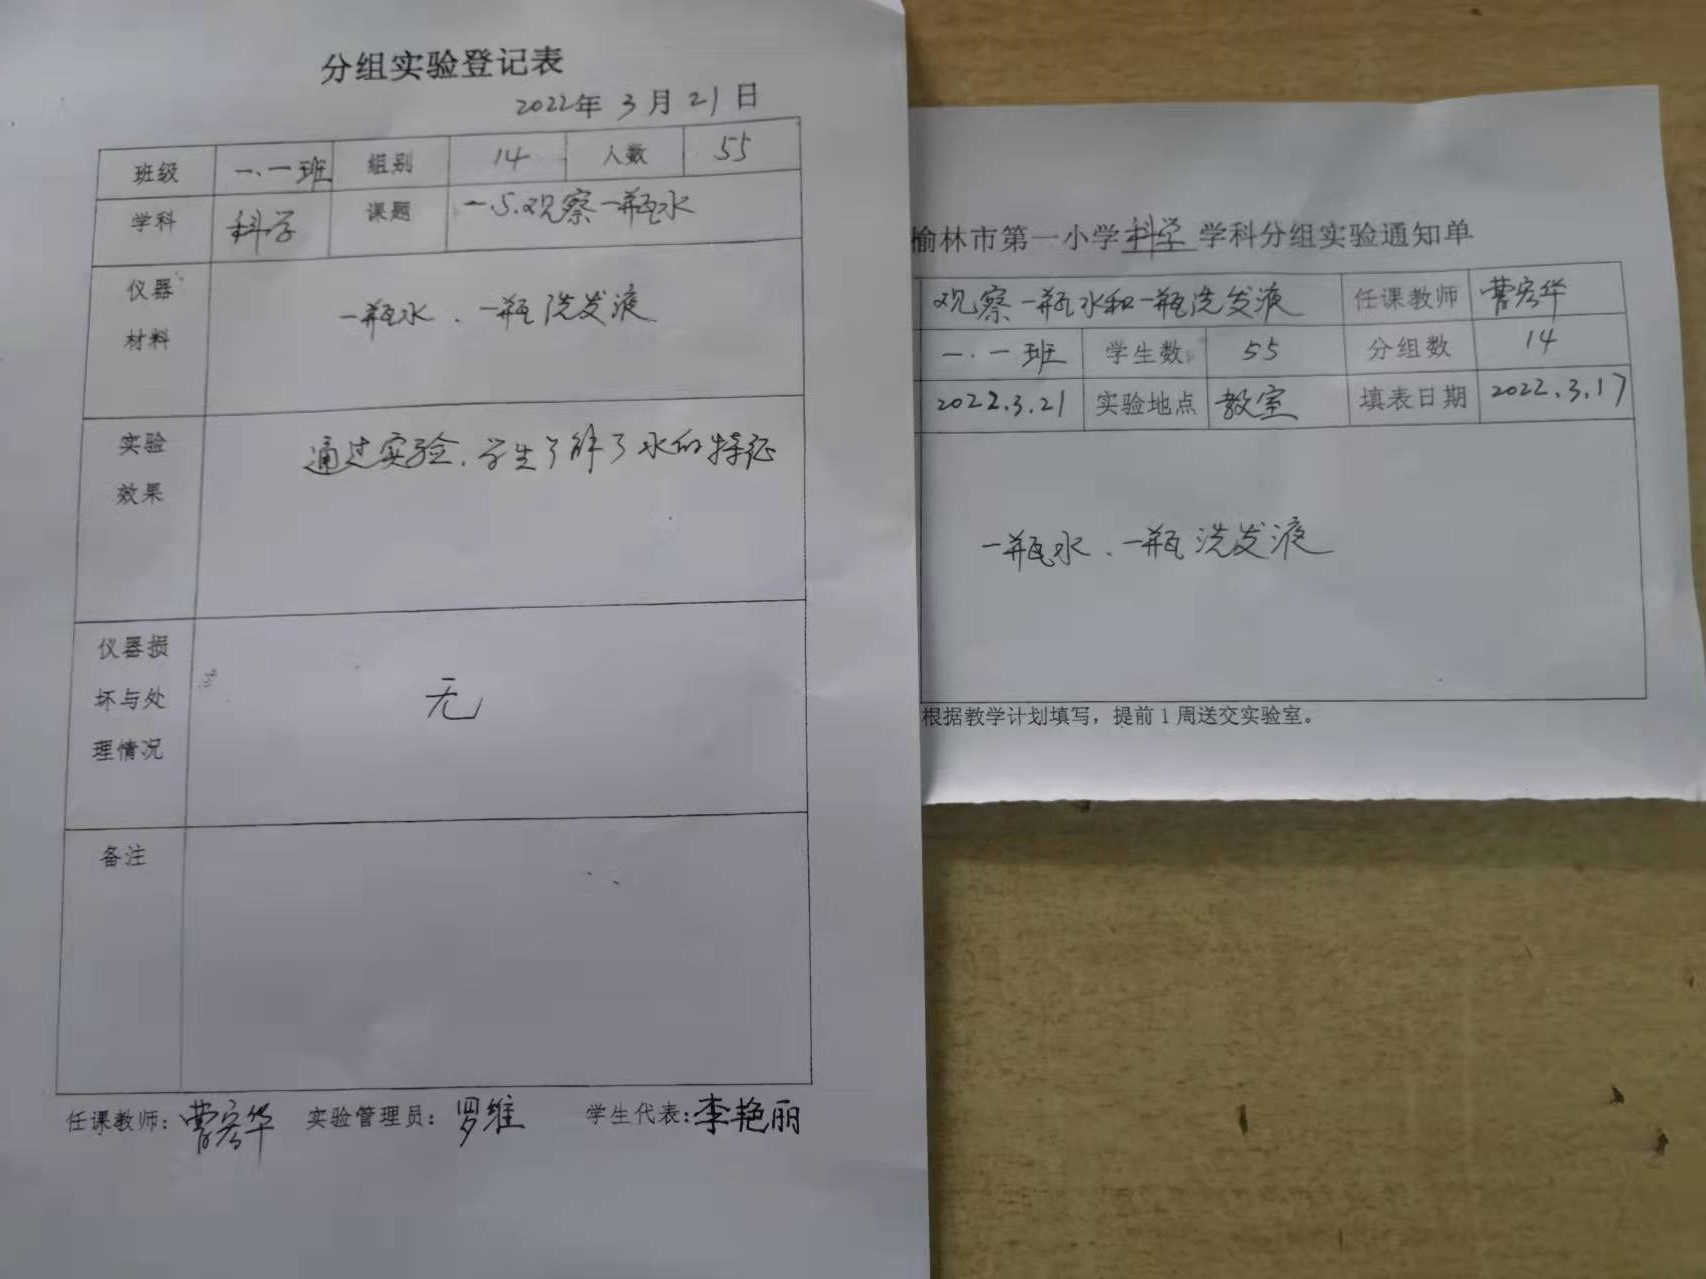 分组实验登记表
2022年 3月 21日
班级 一.一班 组别 14 人数 55
学科 科学 课题 一.5.观察一瓶水
仪器
材料
一瓶水、一瓶洗发液
实验
效果
通过实验,学生了解了水的特征
仪器损
坏与处
理情况
无
备注
任课教师: 曹宏华 实验管理员: 罗维 学生代表: 李艳丽
榆林市第一小学科学学科分组实验通知单
观察一瓶水和一瓶洗发液 任课教师 曹宏华
一.一班 学生数 55 分组数 14
2022.3.21 实验地点 教室 填表日期 2022.3.17
一瓶水、一瓶洗发液
根据教学计划填写,提前1周送交实验室。